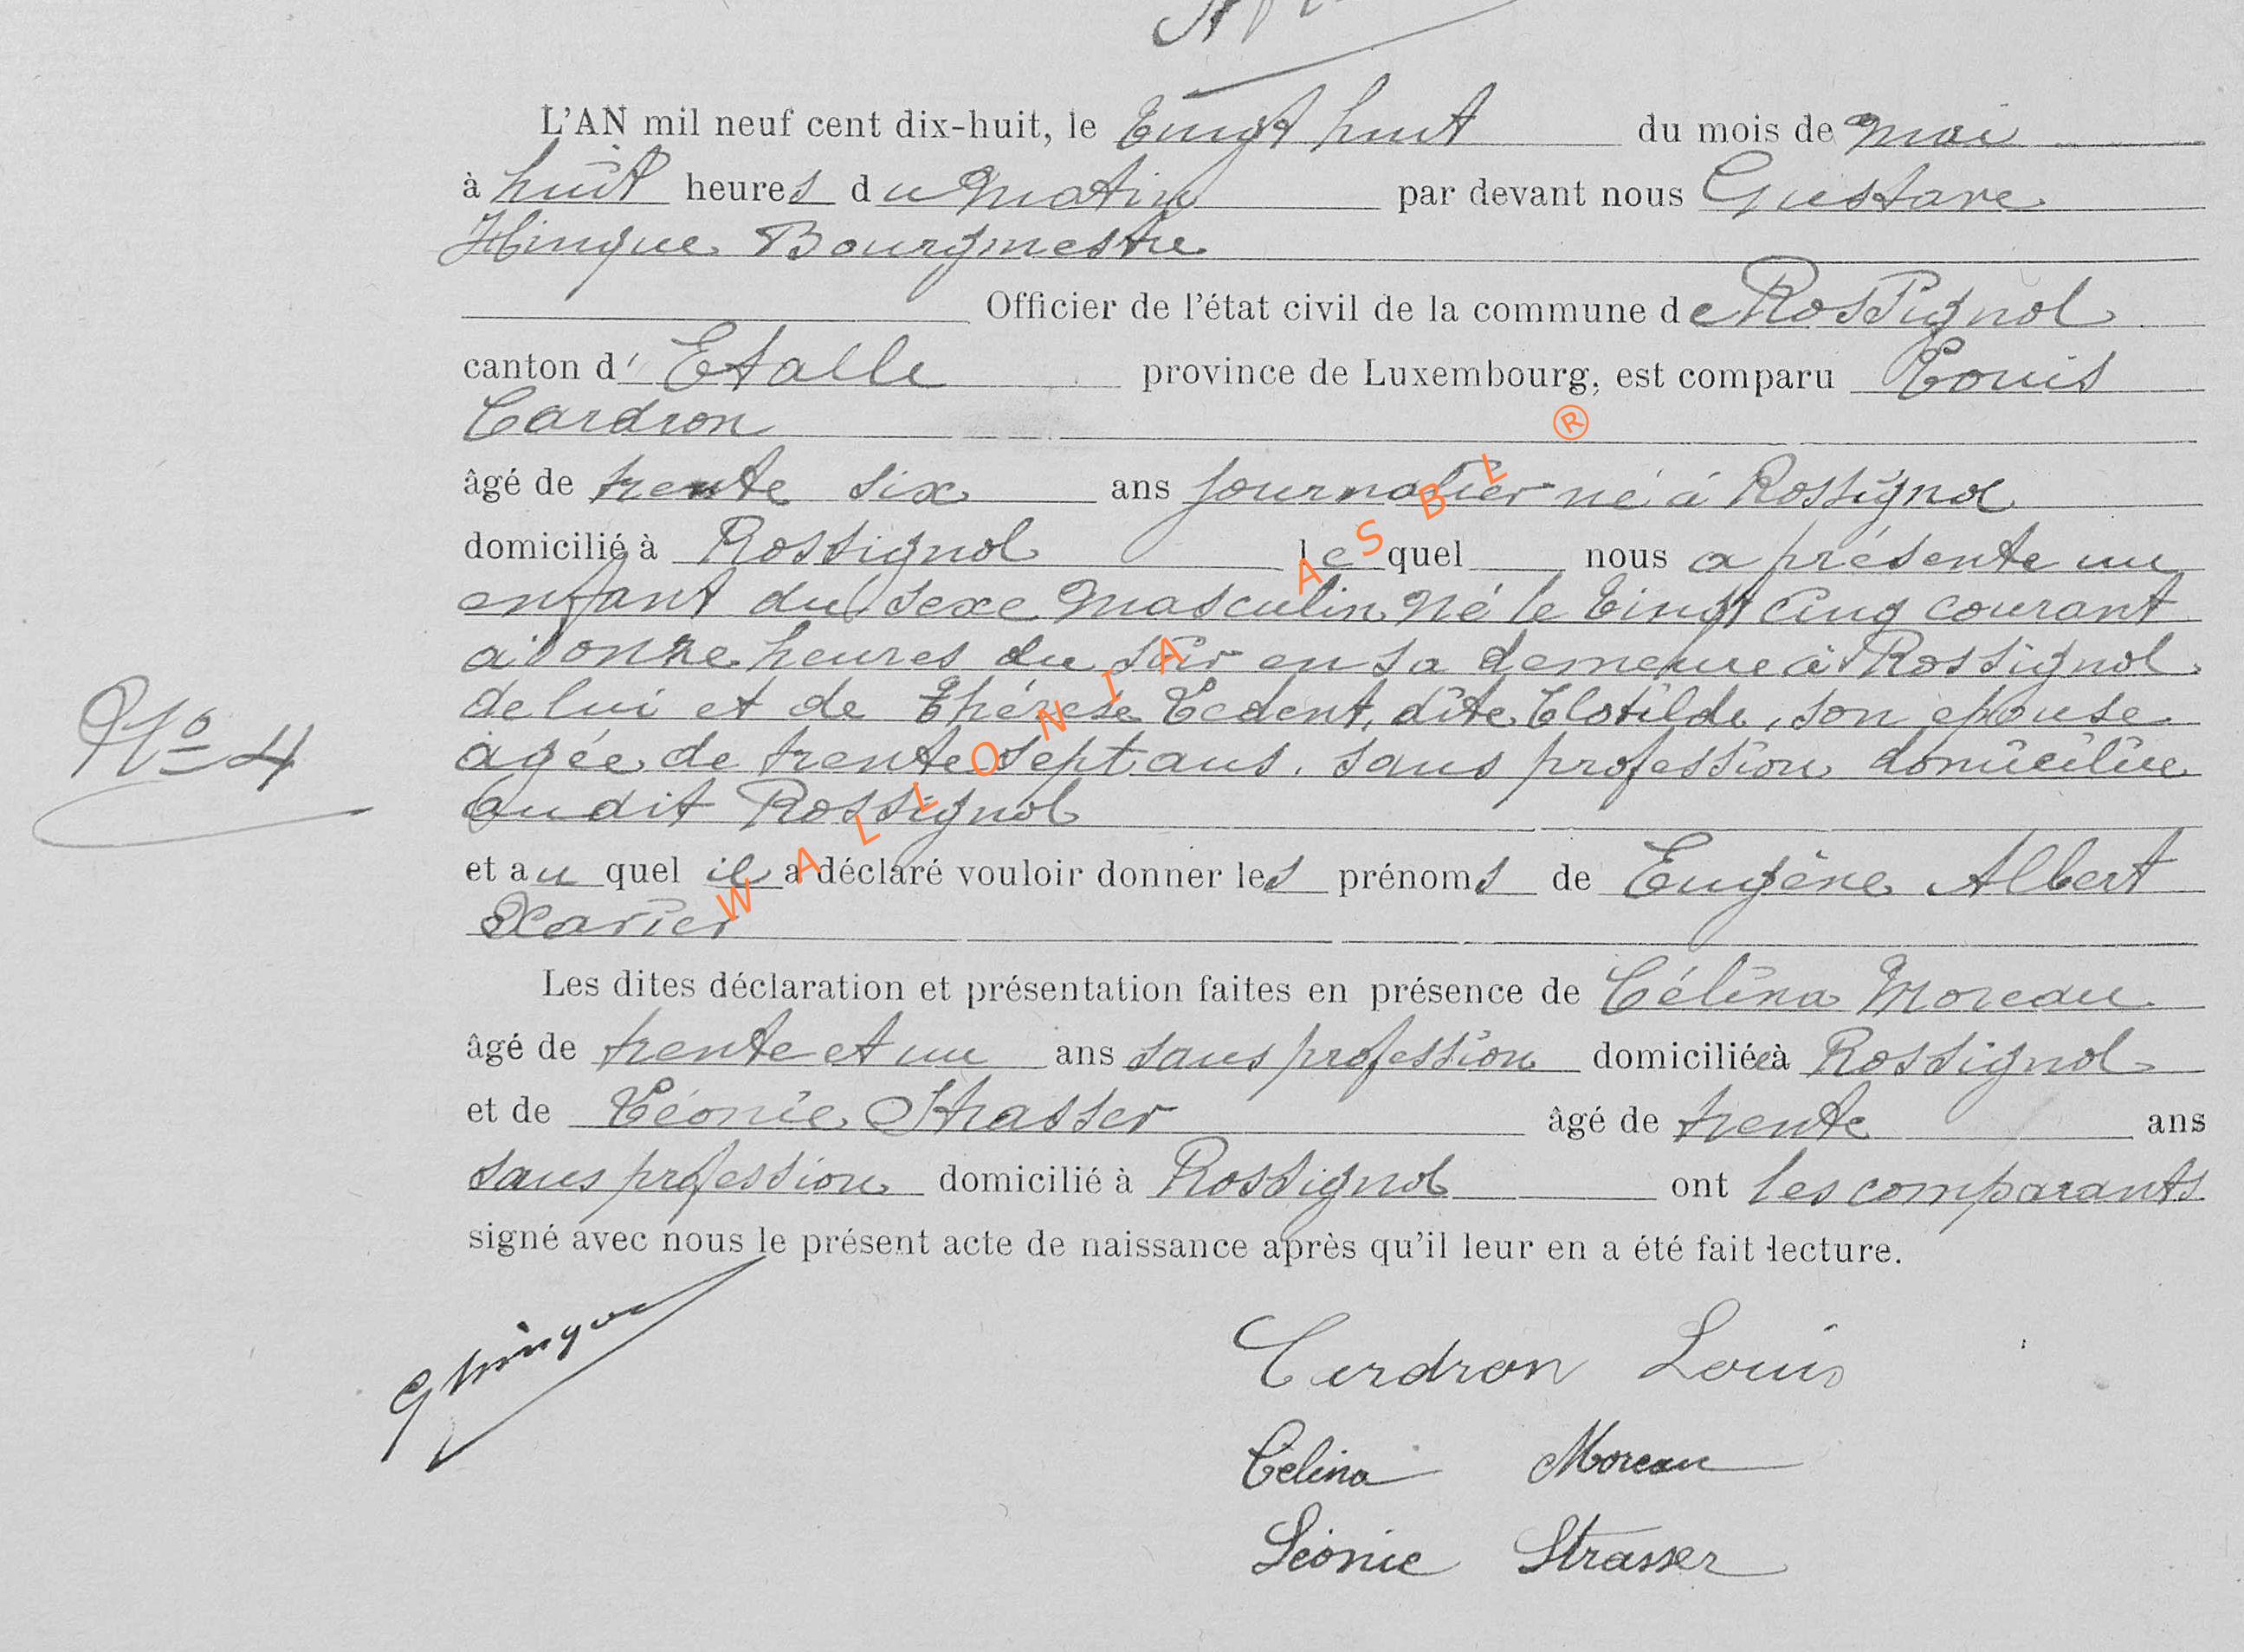 L'AN mil neuf cent dix-huit, le Vingt huit du mois de mai
à huit heures du Matin par devant nous Gustave
Hinque Bourgmestre
Officier de l'état civil de la commune de Rossignol
canton d' Etalle province de Luxembourg, est comparu Louis
Cardron
âgé de trente six ans journalier né à Rossignol
domicilié à Rossignol lequel nous a présente un
enfant du sexe Masculin Né le Vingt cinq courant
à onze heures du soir en sa demeure à Rossignol
de lui et de Thérèse Ledent, dite Clotilde, son epouse
agée de trente sept ans, sans profession domiciliée
audit Rossignol
et au quel il a déclaré vouloir donner les prénoms de Eugène Albert
Xavier
Les dites déclaration et présentation faites en présence de Célina Moreau
âgé de trente et un ans sans profession domiciliée à Rossignol
et de Léonie Strasser âgé de trente ans
sans profession domicilié à Rossignol ont les comparants
signé avec nous le présent acte de naissance après qu'il leur en a été fait lecture.
No 4
GHinque
Cardron Louis
Célina Moreau
Léonie Strasser
WALLONIA ASBL ®